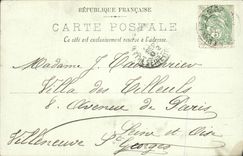 RÉPUBLIQUE FRANÇAISE
CARTE POSTALE
Ce côté est exclusivement réservé à l'adresse.
Madame J.
Villa des Tilleuls
8. Avenue de Paris
Villeneuve St Georges
Seine et Oise